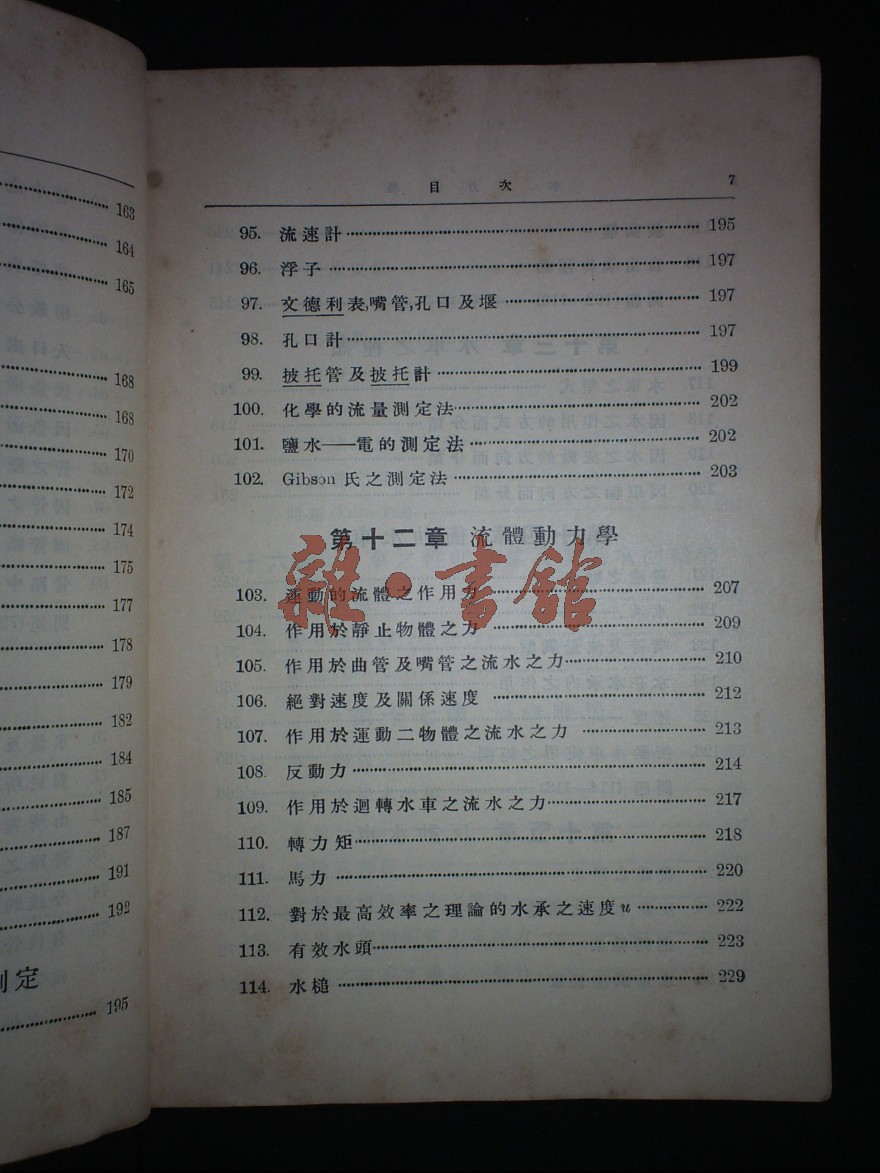 163
164
165
168
168
170
172
174
175
177
178
179
182
184
185
187
191
192
定
195
目次 7
95. 流速計 195
96. 浮子 197
97. 文德利表,嘴管,孔口及堰 197
98. 孔口計 197
99. 披托管及披托計 199
100. 化學的流量測定法 202
101. 鹽水——電的測定法 202
102. Gibson 氏之測定法 203
第十二章 流體動力學
103. 運動的流體之作用力 207
104. 作用於靜止物體之力 209
105. 作用於曲管及嘴管之流水之力 210
106. 絕對速度及關係速度 212
107. 作用於運動二物體之流水之力 213
108. 反動力 214
109. 作用於迴轉水車之流水之力 217
110. 轉力矩 218
111. 馬力 220
112. 對於最高效率之理論的水承之速度u 222
113. 有效水頭 223
114. 水槌 229
雜·書館